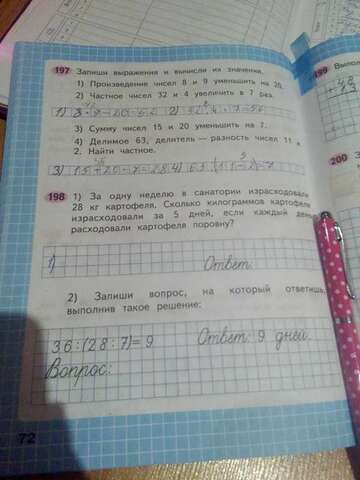 197 Запиши выражения и вычисли их значения.
1) Произведение чисел 8 и 9 уменьшить на 20.
2) Частное чисел 32 и 4 увеличить в 7 раз.
3) Сумму чисел 15 и 20 уменьшить на 7.
4) Делимое 63, делитель — разность чисел 11 и
2. Найти частное.
198 1) За одну неделю в санатории израсходовали
28 кг картофеля. Сколько килограммов картофеля
израсходовали за 5 дней, если каждый день
расходовали картофеля поровну?
1) Ответ:
2) Запиши вопрос, на который ответишь,
выполнив такое решение:
36:(28:7)=9 Ответ: 9 дней.
Вопрос:
72
199 Выпо
200